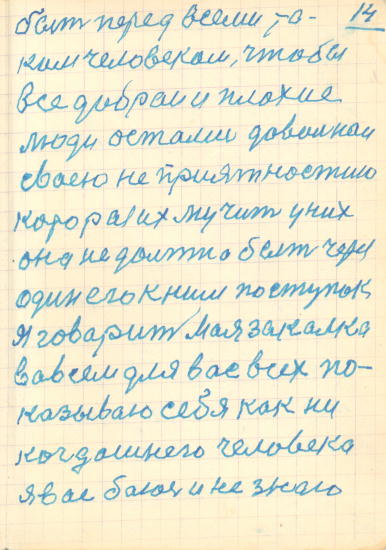 14
быт перед всеми та-
ким человеком, чтобы
все добраи и плохие
люди остали доволнаи
своею не приятностию
котораяих мучит у них
она не должно быт через
один его к ним поступок
Я говарит Маязакалка
Вовсем для вас всех по-
казываю себя как ни
когдашнего человека
я вас баюся и не знаю